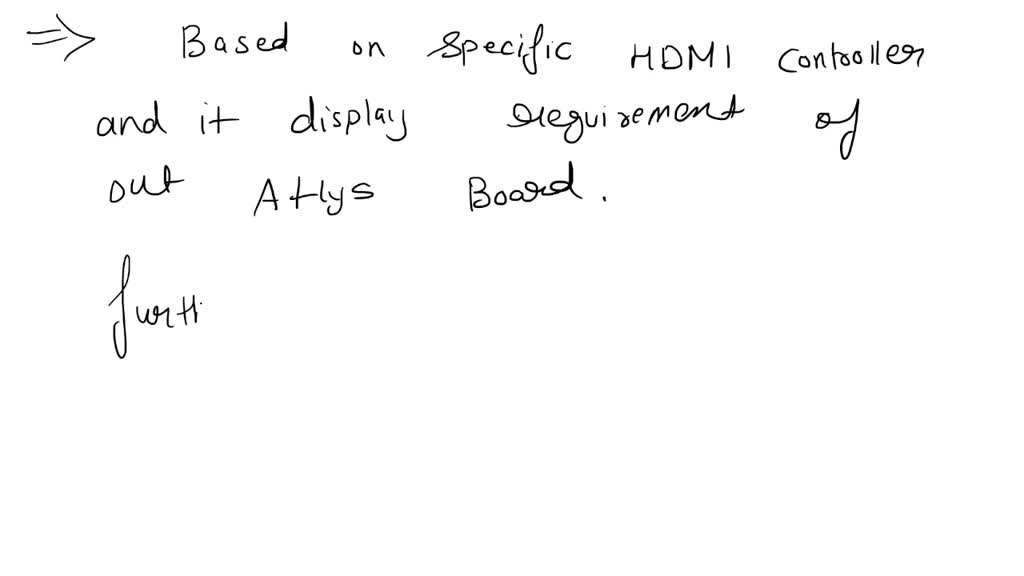 ⇒ Based on specific HDMI controller
and it display requirement of
out Atlys Board.
furth